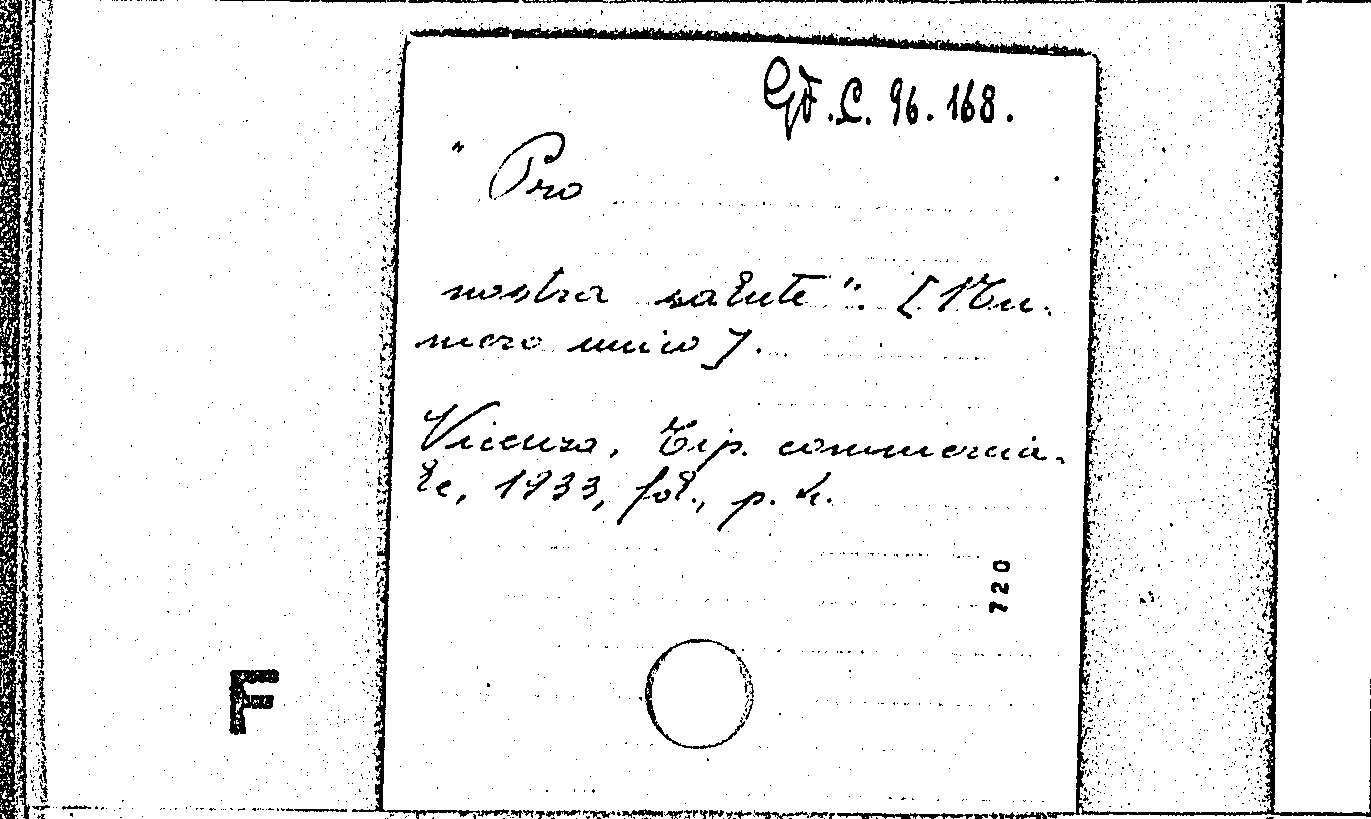 Gδ.C. 96. 168.
" Pro
nostra salute". [Nu-
mero unico].
Vicenza, Tip. commercia-
le, 1933, fol., p. 4.
720
F